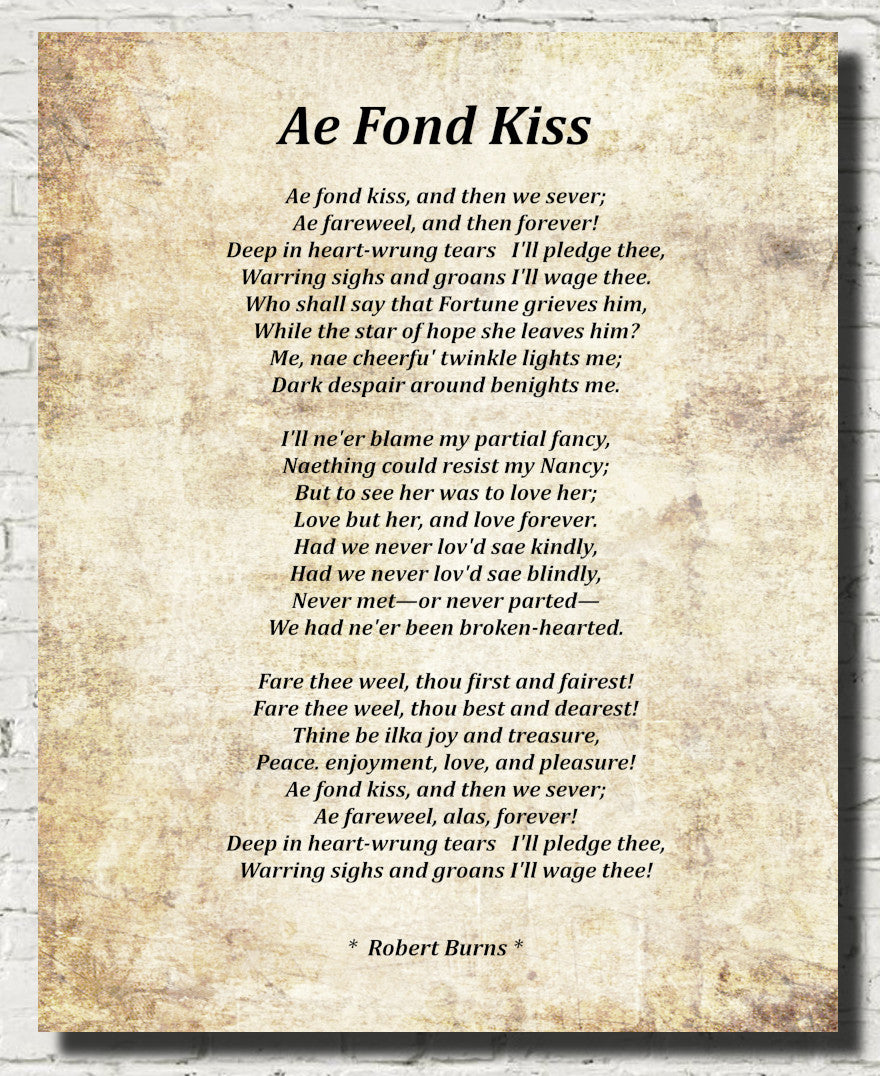 Ae Fond Kiss
Ae fond kiss, and then we sever;
Ae fareweel, and then forever!
Deep in heart-wrung tears I'll pledge thee,
Warring sighs and groans I'll wage thee.
Who shall say that Fortune grieves him,
While the star of hope she leaves him?
Me, nae cheerfu' twinkle lights me;
Dark despair around benights me.
I'll ne'er blame my partial fancy,
Naething could resist my Nancy;
But to see her was to love her;
Love but her, and love forever.
Had we never lov'd sae kindly,
Had we never lov'd sae blindly,
Never met—or never parted—
We had ne'er been broken-hearted.
Fare thee weel, thou first and fairest!
Fare thee weel, thou best and dearest!
Thine be ilka joy and treasure,
Peace. enjoyment, love, and pleasure!
Ae fond kiss, and then we sever;
Ae fareweel, alas, forever!
Deep in heart-wrung tears I'll pledge thee,
Warring sighs and groans I'll wage thee!
* Robert Burns *